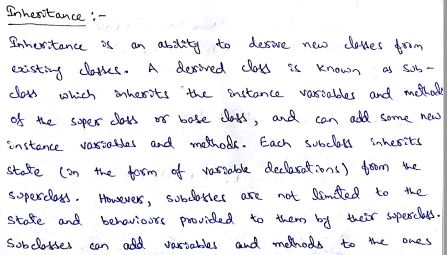 Inheritance :-
Inheritance is an ability to derive new classes from
existing classes. A derived class is known as Sub-
class which inherits the instance variables and methods
of the super class or base class, and can add some new
instance variables and methods. Each subclass inherits
state (in the form of variable declarations) from the
superclass. However, subclasses are not limited to the
state and behaviours provided to them by their superclass.
Subclasses can add variables and methods to the ones